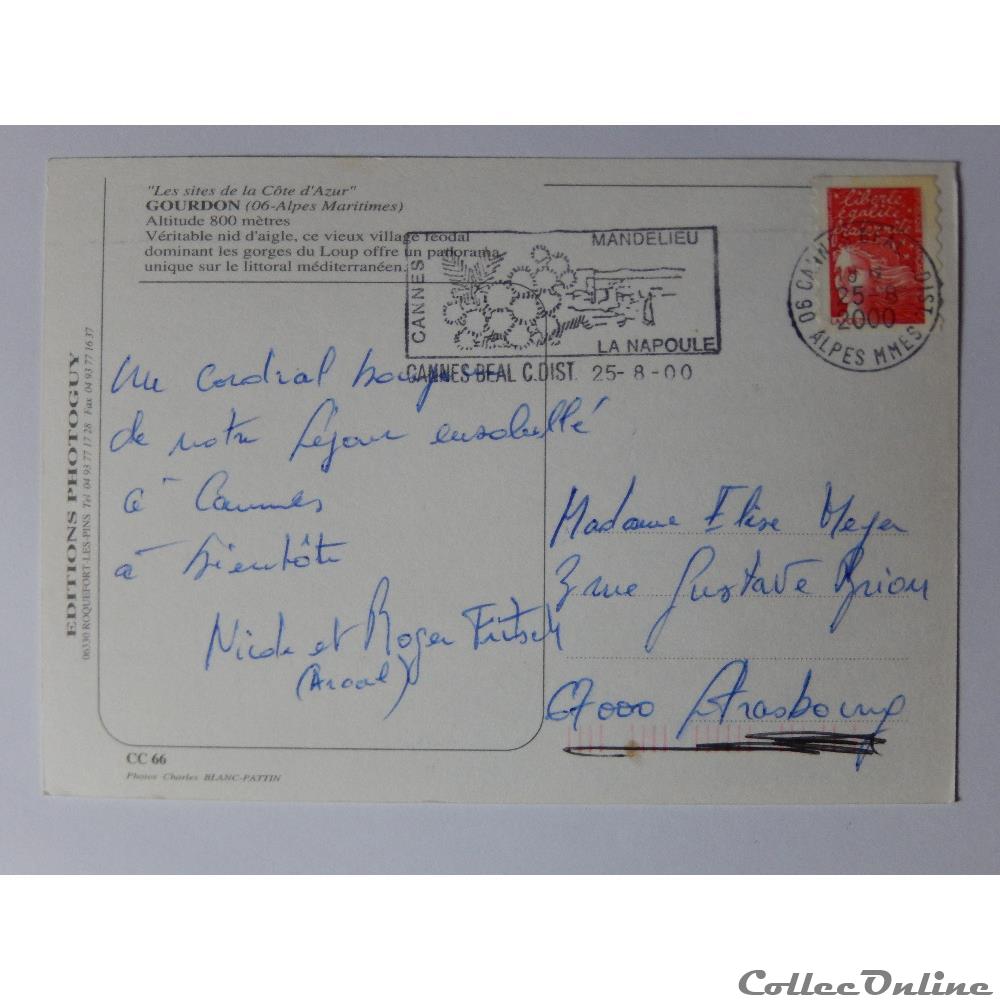 "Les sites de la Côte d'Azur"
GOURDON (06-Alpes Maritimes)
Altitude 800 mètres
Véritable nid d'aigle, ce vieux village féodal
dominant les gorges du Loup offre un panorama
unique sur le littoral méditerranéen.
CANNES
MANDELIEU
LA NAPOULE
CANNES BEAL C.DIST. 25-8-00
liberté
égalité
fraternité
06 CANNES BEAL C.DIST
25-8
2000
ALPES MMES
EDITIONS PHOTOGUY
06330 ROQUEFORT-LES-PINS Tel 04 93 77 17 28 Fax 04 93 77 16 37
Un cordial bonjour
de notre séjour ensoleillé
à Cannes
à bientôt
Nicole et Roger Fritsch
Madame Elise Meyer
3 rue Gustave Brion
67000 Strasbourg
CC 66
Photos Charles BLANC-PATTIN
CollecOnline